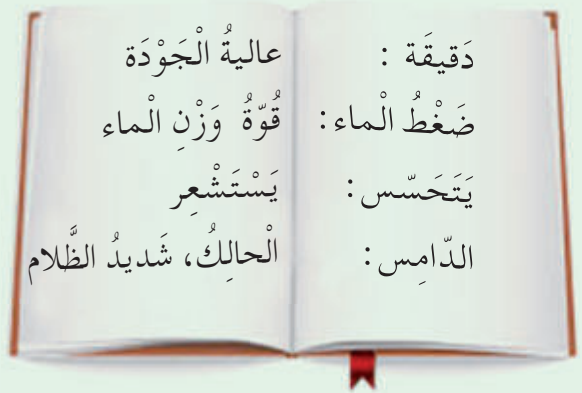 دَقيقَة : عاليةُ الْجَوْدَة
ضَغْطُ الْماء: قُوّةُ وَزْنِ الْماء
يَتَحَسّس: يَسْتَشْعِر
الدّامِس: الْحالِكُ، شَديدُ الظَّلام